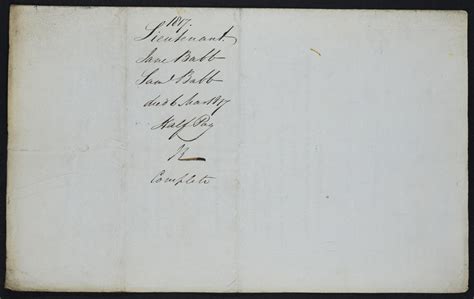 1817.
Lieutenant
Jane Babb
Saml Babb
died 6 Mar 1817
Half Pay
Complete